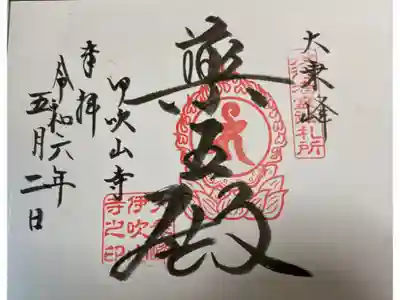 大乗峰
札所
薬王殿
伊吹山寺
奉拝
令和六年
五月二日
大乗峰
伊吹山
寺之印